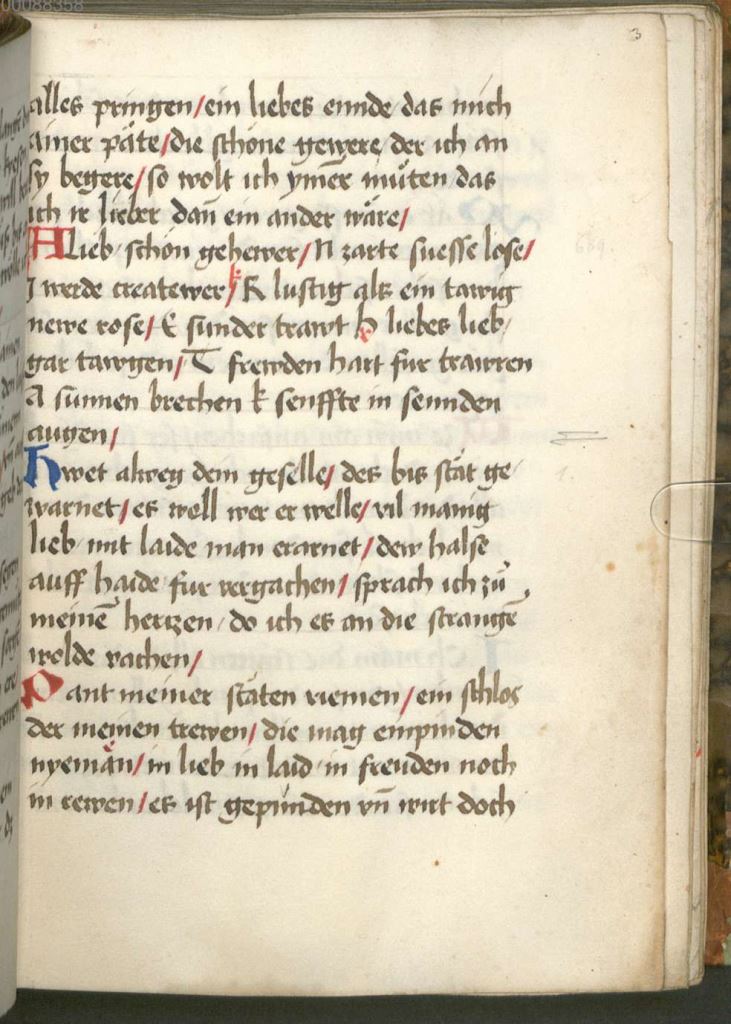 00088358
3
alles pringen / ein liebes ennde das mich
ainer päte / die schöne gewere der ich an
sy begere / so wolt ich ymer müten das
ich ir lieber dañ ein ander wäre /
A lieb schön gehewer / N zarte suesse lose /
I werde createwer / k R lustig als ein tawig
newe rose / E sunder trawt h liebes lieb
gar tawgen / T frewden hart fur trawren
A sunnen brechen k senffte in sennden
augen /
Hwet alweg dem geselle / des bis stät ge
warnet / es well wer er welle / vil manig
lieb mit laide man erarnet / dew halse
auff haide fur vergachen / sprach ich zů
meinē hertzen do ich es an die strangē
wolde rachen /
Pant meiner stäten riemen / ein schlos
der meinen trewen / die mag enpinden
nyeman / in lieb in laid in freuden noch
in rewen / es ist gepunden vñ wirt doch